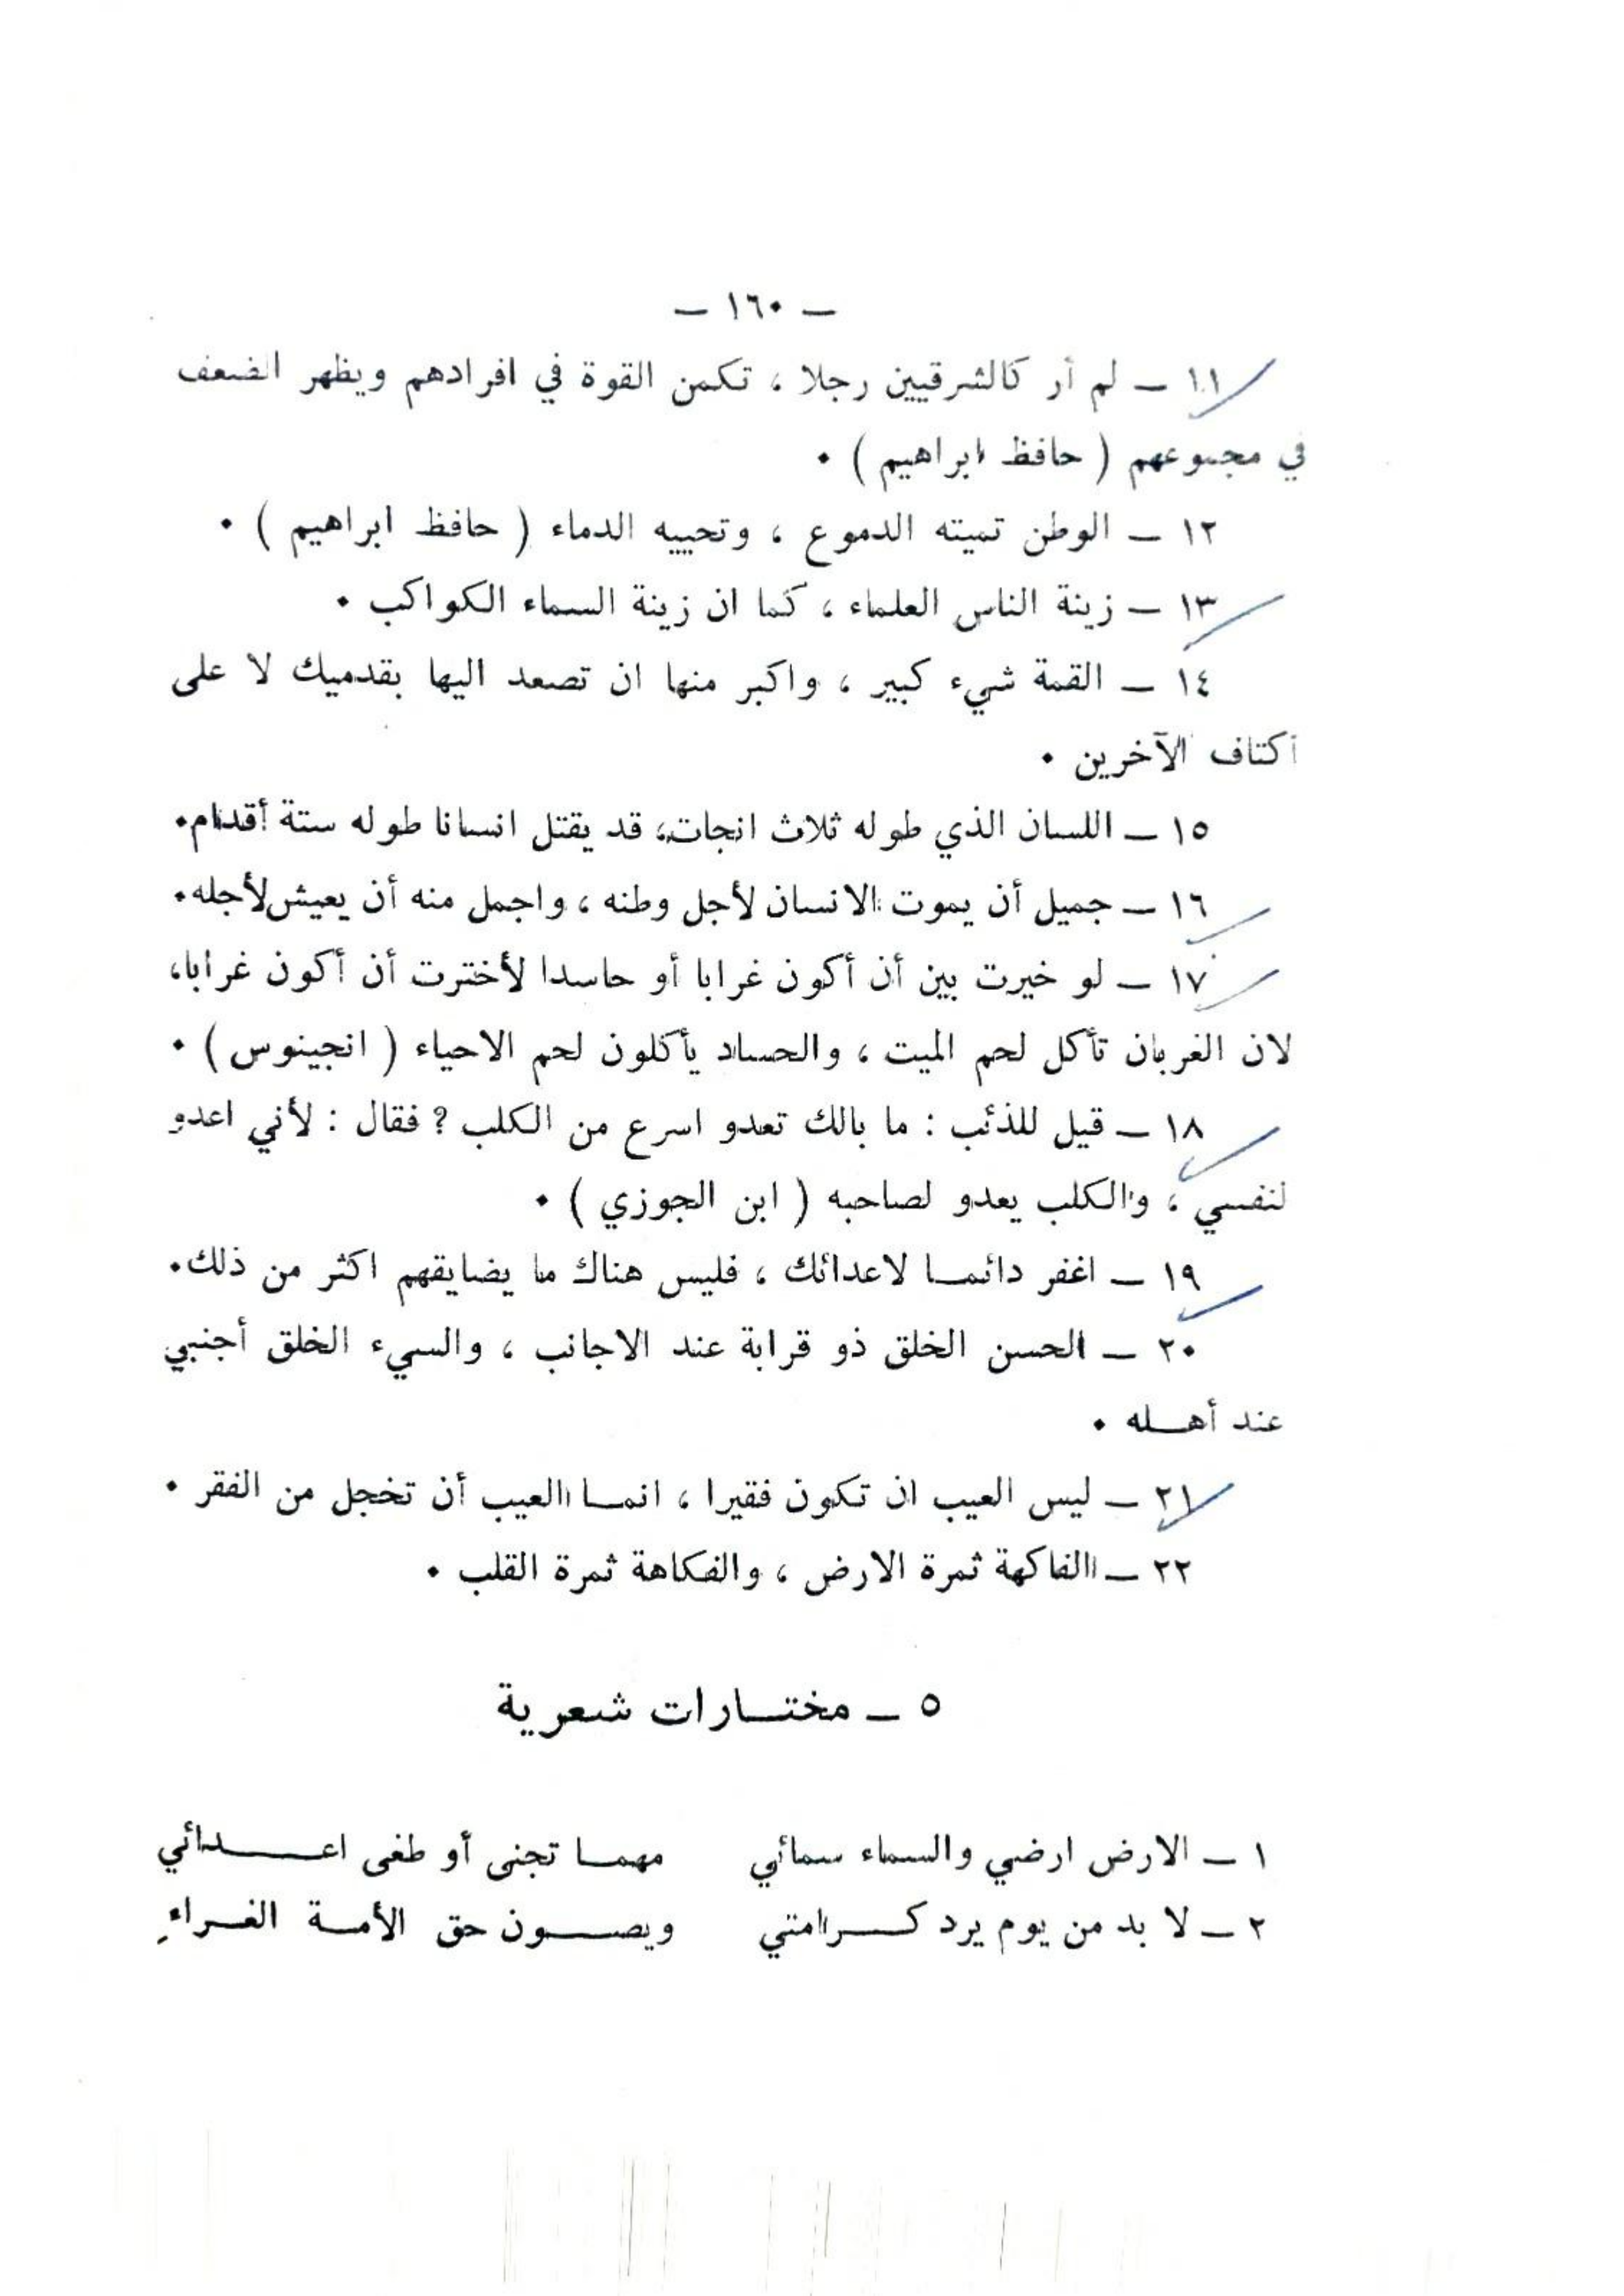 — ١٦٠ —
١١ — لم أر كالشرقيين رجلا ، تكمن القوة في افرادهم ويظهر الضعف
في مجموعهم ( حافظ ابراهيم ) .
١٢ — الوطن تميته الدموع ، وتحييه الدماء ( حافظ ابراهيم ) .
١٣ — زينة الناس العلماء ، كما ان زينة السماء الكواكب .
١٤ — القمة شيء كبير ، واكبر منها ان تصعد اليها بقدميك لا على
أكتاف الآخرين .
١٥ — اللسان الذي طوله ثلاث انجات، قد يقتل انسانا طوله ستة أقدام.
١٦ — جميل أن يموت الانسان لأجل وطنه ، واجمل منه أن يعيش لأجله.
١٧ — لو خيرت بين أن أكون غرابا أو حاسدا لأخترت أن أكون غرابا،
لان الغربان تأكل لحم الميت ، والحساد يأكلون لحم الاحياء ( انجينوس ) .
١٨ — قيل للذئب : ما بالك تعدو اسرع من الكلب ? فقال : لأني اعدو
لنفسي ، والكلب يعدو لصاحبه ( ابن الجوزي ) .
١٩ — اغفر دائمـا لاعدائك ، فليس هناك ما يضايقهم اكثر من ذلك.
٢٠ — الحسن الخلق ذو قرابة عند الاجانب ، والسيء الخلق أجنبي
عند أهـله .
٢١ — ليس العيب ان تكون فقيرا ، انمـا العيب أن تخجل من الفقر .
٢٢ — الفاكهة ثمرة الارض ، والفكاهة ثمرة القلب .
٥ — مختـارات شعرية
١ — الارض ارضي والسماء سمائي مهمـا تجنى أو طغى اعـــدائي
٢ — لا بد من يوم يرد كـــرامتي ويصـــون حق الأمـة الغـراءِ